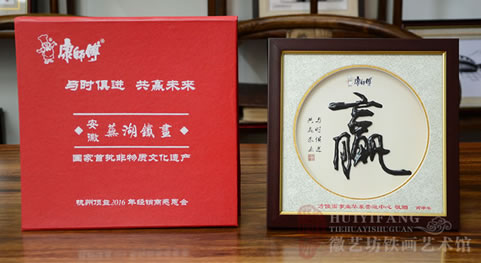 康師傅
与时俱进 共赢未来
安徽
蕪湖鐵畫
国家首批非物质文化遗产
杭州顶益2016年经销商感恩会
康師傅
赢
与时俱进
共赢未来
HUIYIFANG
TIEHUAYISHUGUAN
徽艺坊铁画艺术馆